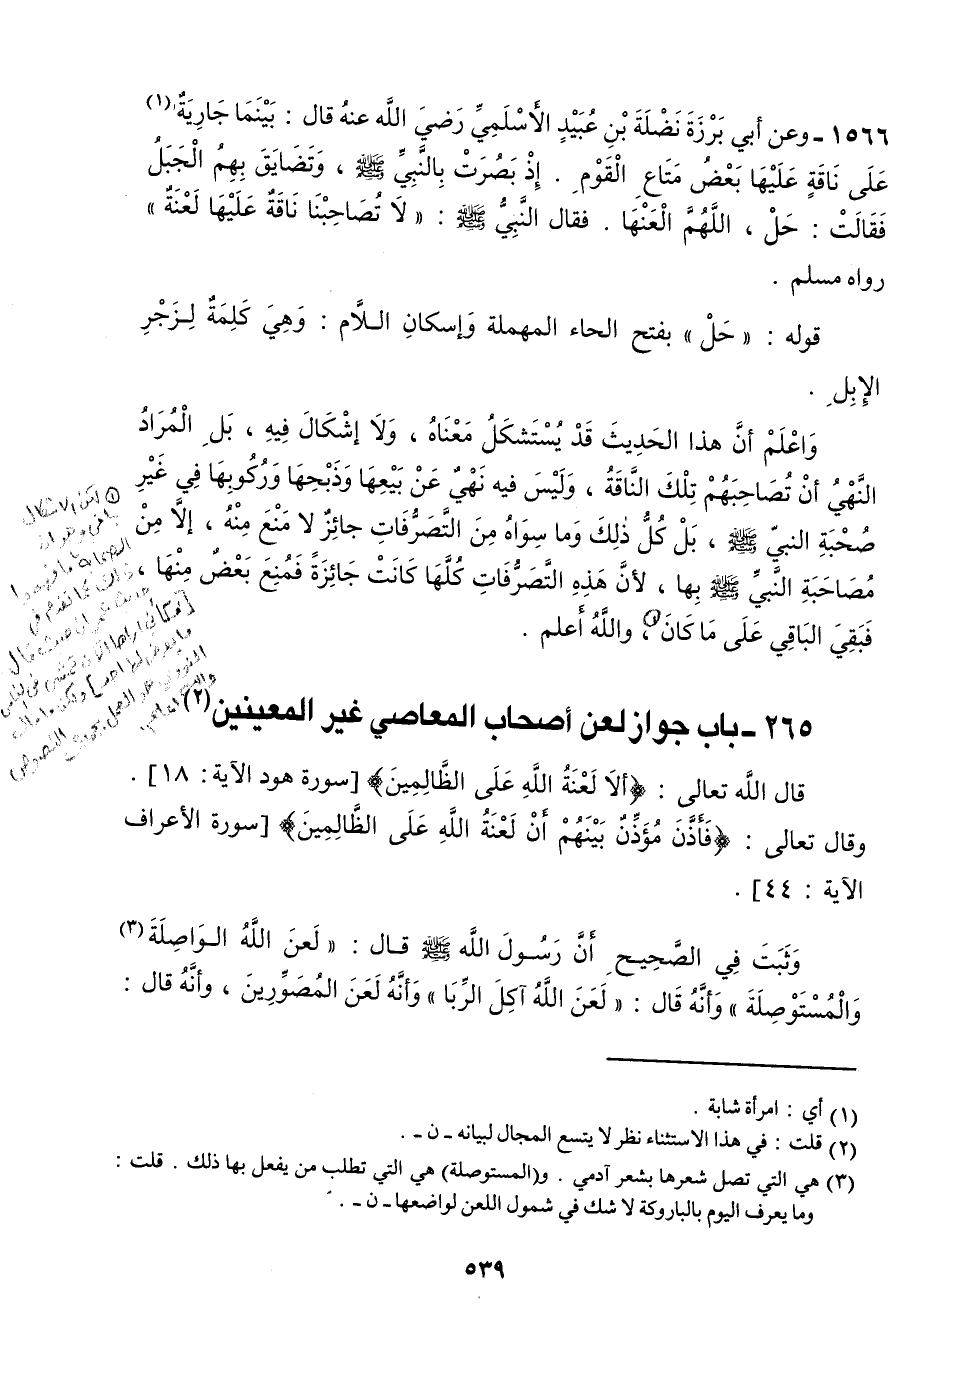 ١٥٦٦ ـ وعن أبي بَرْزَةَ نَضْلَةَ بْنِ عُبَيْدٍ الأَسْلَمِيِّ رَضِيَ اللَّه عنهُ قال : بَيْنَمَا جَارِيَةٌ(١)
عَلَى نَاقَةٍ عَلَيْهَا بَعْضُ مَتَاعِ الْقَوْمِ . إِذْ بَصُرَتْ بِالنَّبِيِّ ﷺ ، وَتَضَايَقَ بِهِمُ الْجَبَلُ
فَقَالَتْ : حَلْ ، اللَّهُمَّ الْعَنْهَا . فقال النَّبِيُّ ﷺ : « لَا تُصَاحِبْنَا نَاقَةٌ عَلَيْهَا لَعْنَةٌ »
رواه مسلم .
قوله : « حَلْ » بفتح الحاء المهملة وَإسكانِ الـلَّام : وَهِيَ كَلِمَةٌ لِـزَجْرِ
الإِبِلِ .
وَاعْلَمْ أنَّ هذا الحَدِيثَ قَدْ يُسْتَشكَلُ مَعْنَاهُ ، وَلَا إشْكَالَ فِيهِ ، بَلِ الْمُرَادُ
النَّهْيُ أنْ تُصَاحِبَهُمْ تِلْكَ النَّاقَةُ ، وَلَيْسَ فيه نَهْيٌ عَنْ بَيْعِهَا وَذَبْحِهَا وَرُكُوبِهَا فِي غَيْرِ
صُحْبَةِ النبيّ ﷺ ، بَلْ كُلُّ ذٰلِكَ وَما سِوَاهُ مِنَ التَّصَرُّفَاتِ جائِزٌ لا مَنْعَ مِنْهُ ، إلَّا مِنْ
مُصَاحَبَةِ النَّبيِّ ﷺ بِها ، لأنَّ هَذِهِ التَّصَرُّفَاتِ كُلَّهَا كَانَتْ جَائِزَةً فَمُنِعَ بَعْضٌ مِنْهَا ،
فَبَقِيَ البَاقِي عَلَى مَا كَانَ ، واللَّهُ أعلم .
٢٦٥ ـ باب جواز لعن أصحاب المعاصي غير المعينين(٢)
قال اللَّه تعالى : ﴿أَلَا لَعْنَةُ اللَّهِ عَلَى الظَّالِمِينَ﴾ [سورة هود الآية: ١٨] .
وقال تعالى : ﴿فَأَذَّنَ مُؤَذِّنٌ بَيْنَهُمْ أَنْ لَعْنَةُ اللَّهِ عَلَى الظَّالِمِينَ﴾ [سورة الأعراف
الآية : ٤٤] .
وَثَبَتَ فِي الصَّحِيحِ أَنَّ رَسُـولَ اللَّه ﷺ قـال : « لَعنَ اللَّهُ الـوَاصِلَةَ(٣)
وَالْمُسْتَوْصِلَةَ » وَأنَّهُ قَال : « لَعَنَ اللَّهُ آكِلَ الرِّبَا » وَأنَّهُ لَعَنَ المُصَوِّرِينَ ، وأنَّهُ قال :
(١) أي : امرأة شابة .
(٢) قلت : في هذا الاستثناء نظر لا يتسع المجال لبيانه ـ ن ـ .
(٣) هي التي تصل شعرها بشعر آدمي . و(المستوصلة) هي التي تطلب من يفعل بها ذلك . قلت :
وما يعرف اليوم بالباروكة لا شك في شمول اللعن لواضعها ـ ن ـ .
٥٣٩